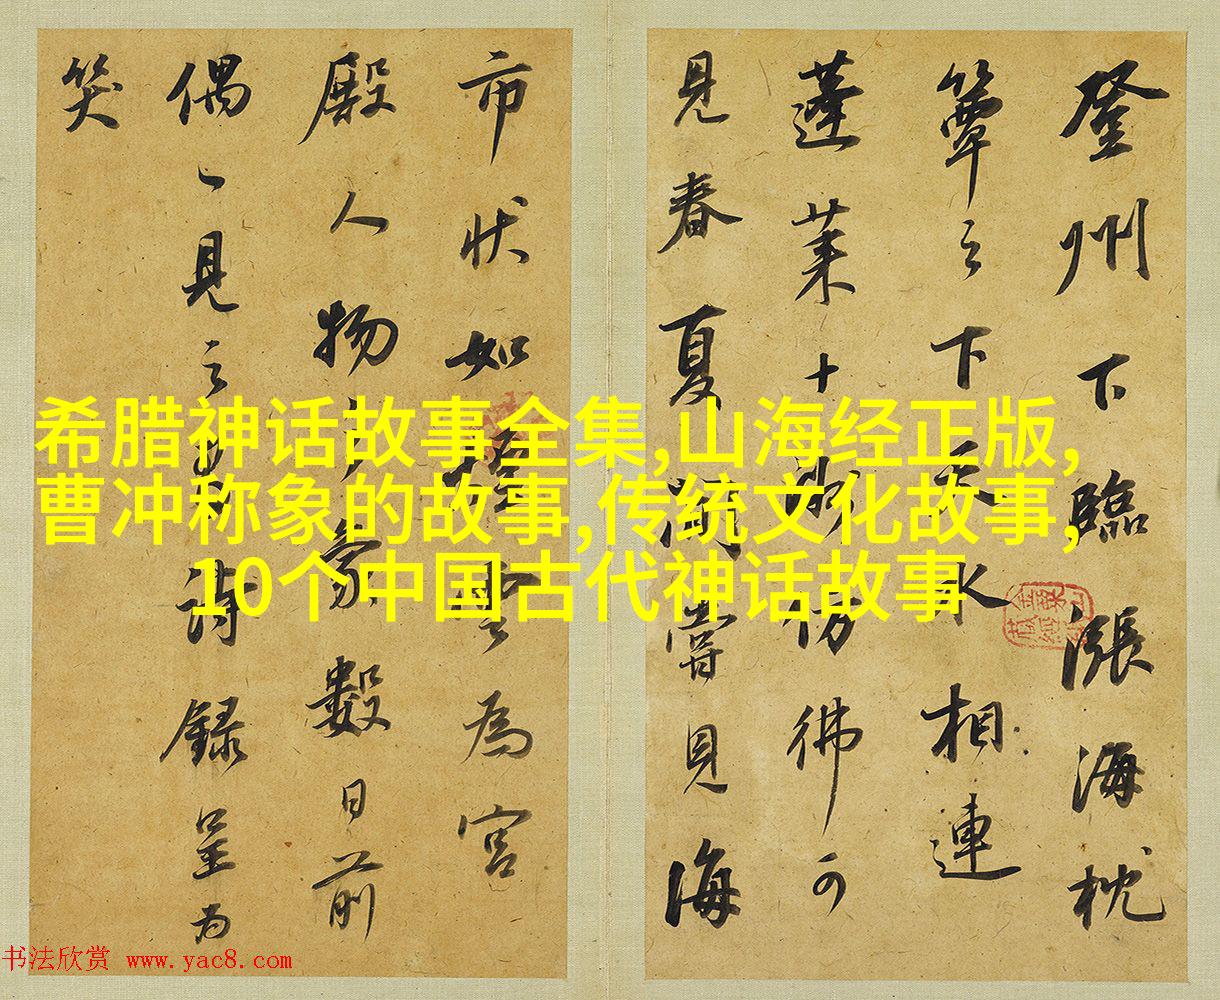 登州下臨漲海枕
簟之下天水相連
蓬莱十洲仿彿可
見春夏間嘗見海
市状如為宮
殿人物象數日前
偶〻見之詩録呈为
笑
希腊神话故事全集,山海经正版,
曹冲称象的故事,传统文化故事,
10个中国古代神话故事
书法欣赏 www.yac8.com